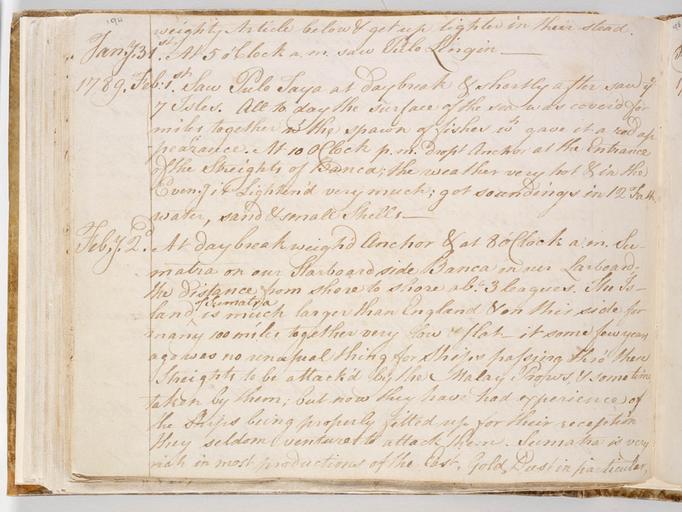 194
weighty Article below & get up lighter in their stead.
Jany. 31st. At 5 oClock a.m. saw Pulo Lingin —
1789. Feb: 1st. Saw Pulo Taya at daybreak & shortly after saw ye
7 Isles. All to day the surface of the sea was cover'd for
miles together wt. the spawn of fishes wh. gave it a red ap
pearance. At 10 OClock p.m. dropt Anchor at the Entrance
of the Streights of Banca; the weather very hot & in the
Eveng. it Lighten'd very much; got soundings in 12 Fath.
water, sand & small Shells —
Feby. 2d. At daybreak weigh'd Anchor & at 8 oClock a.m. Su-
matra on our Starboard side Banca on our Larboard
the distance from shore to shore abt. 3 leagues. The Is-
land of Sumatra is much larger than England & on this side for
many 100 miles together very low & flat — it some few years
ago was no unusual thing for Ships passing thro' these
Streights to be attack'd by the Malay Prows, & sometimes
taken by them; but now they have had experience of
the Ships being properly fitted up for their reception
they seldom venture to attack them. Sumatra is very
rich in most productions of the East, Gold Dust in particular,